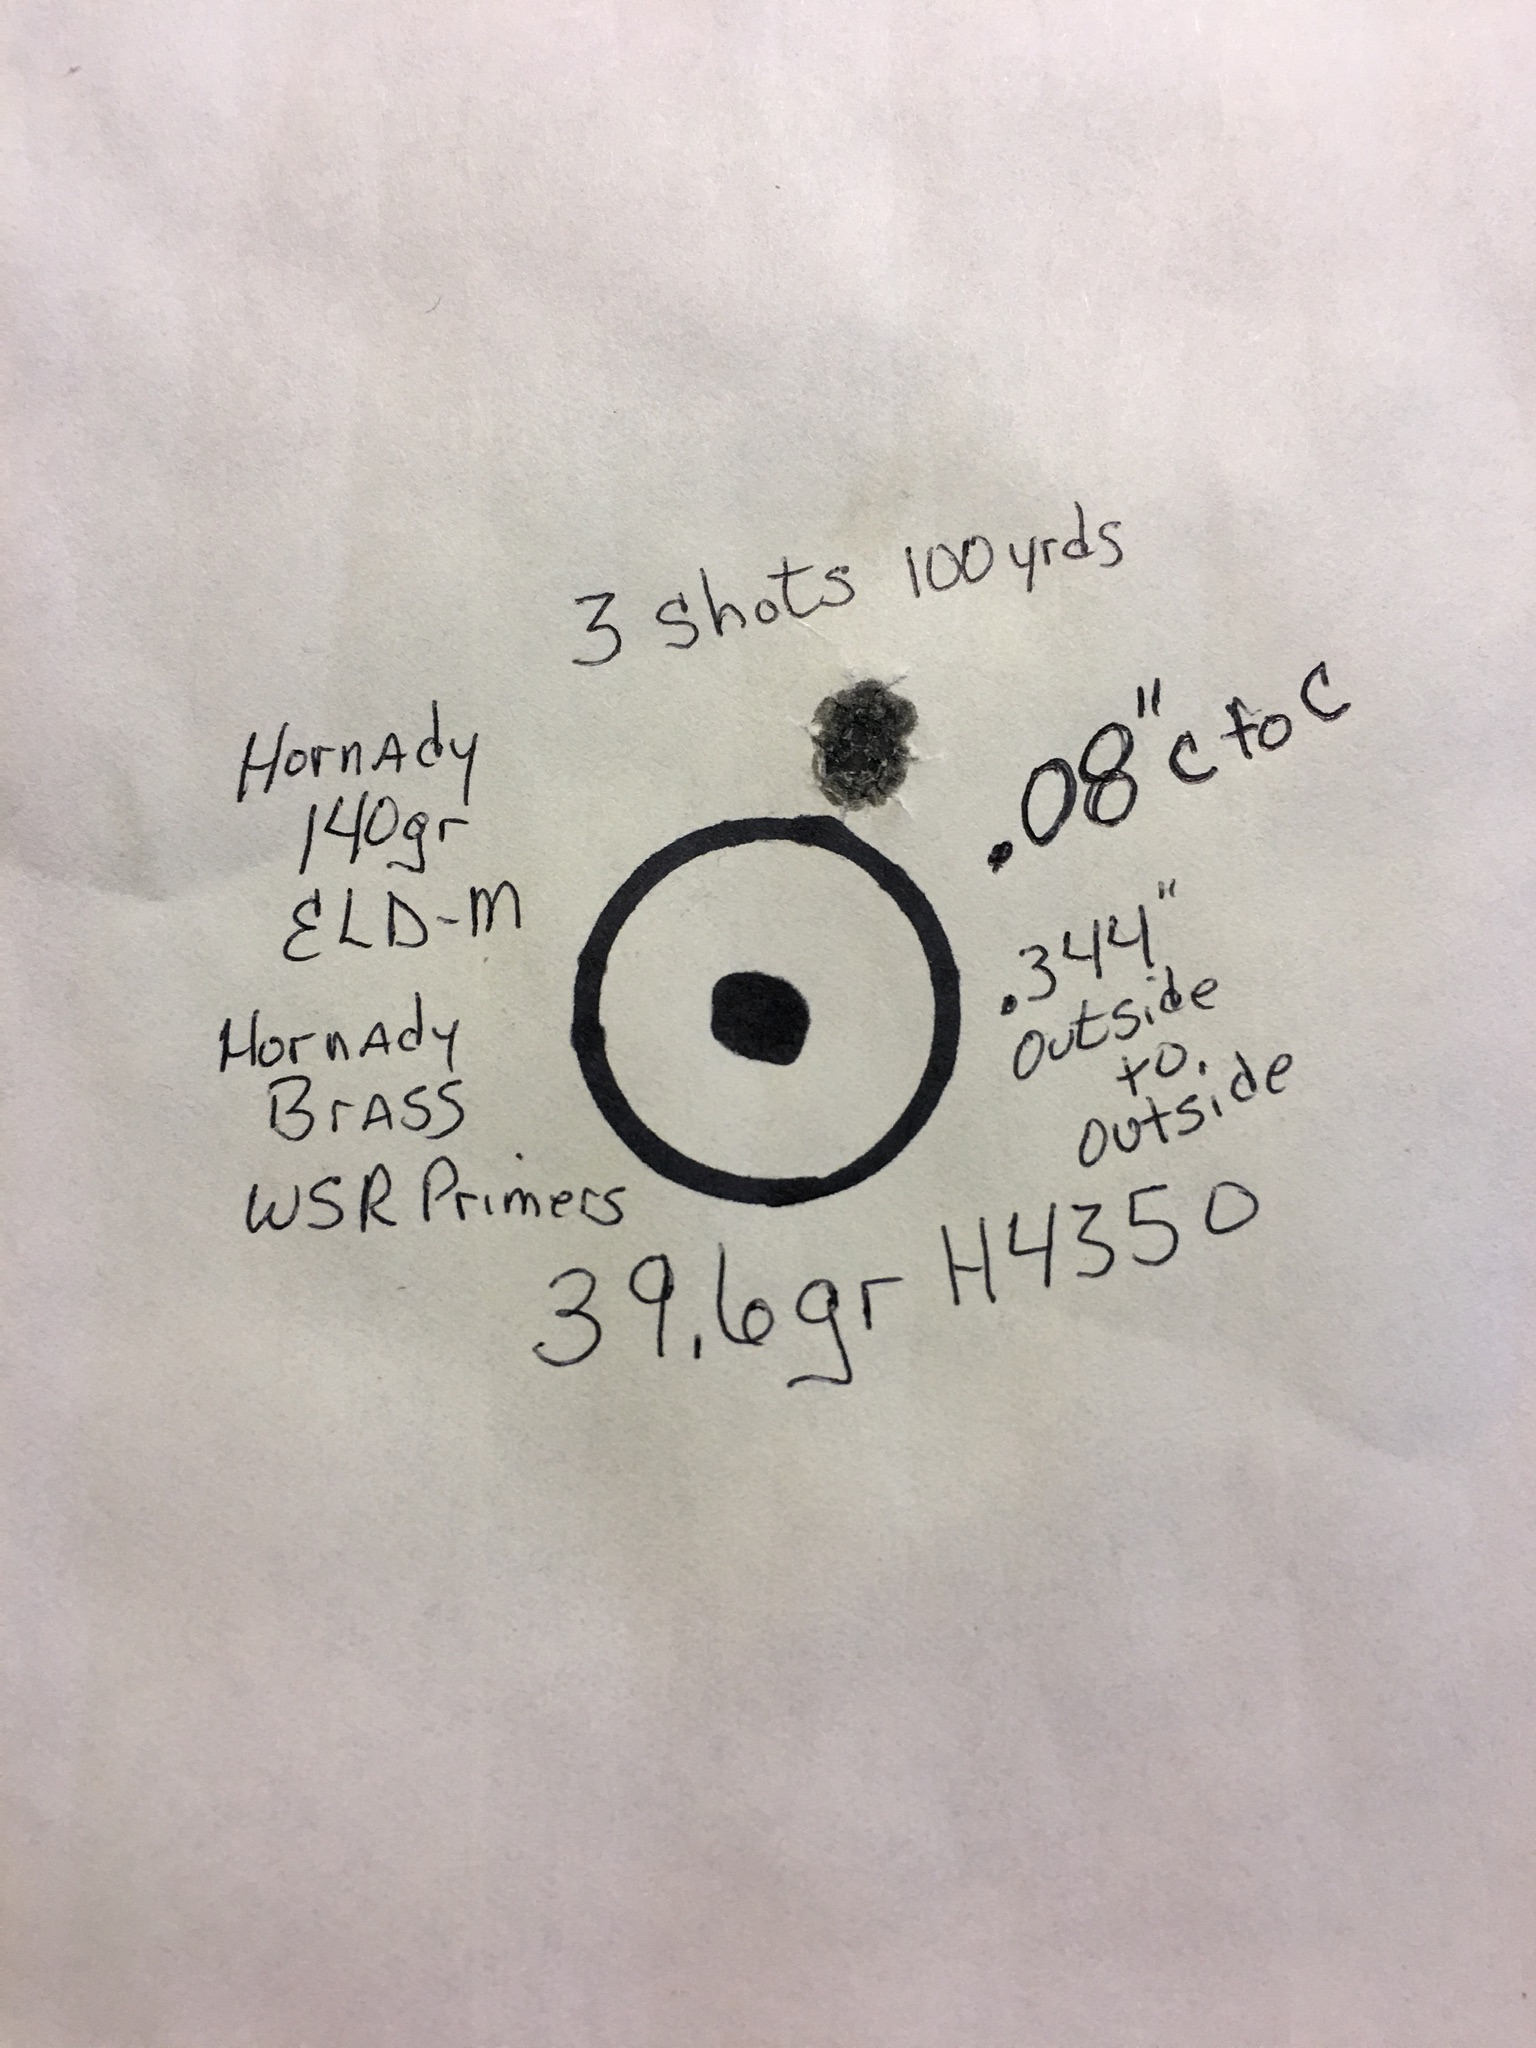 3 shots 100yrds
Hornady
140gr
ELD-M
Hornady
Brass
WSR Primers
.08" c to c
.344"
outside
to.
outside
39.6gr H4350